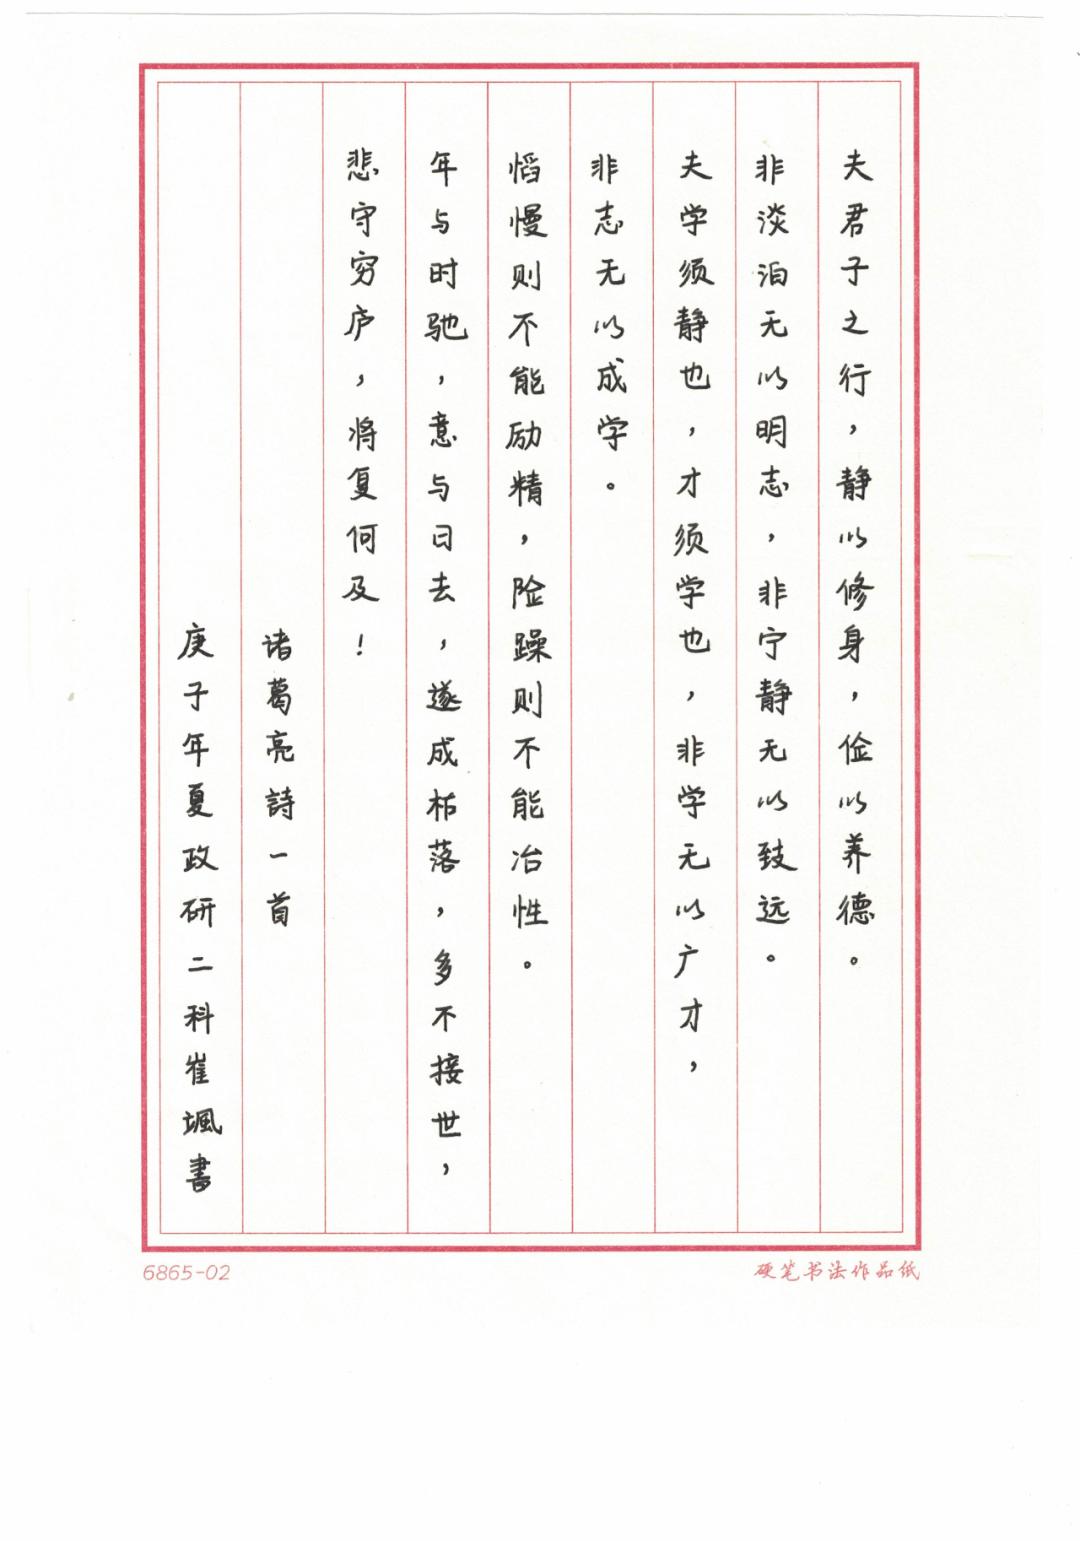 夫君子之行，静以修身，俭以养德。
非淡泊无以明志，非宁静无以致远。
夫学须静也，才须学也，非学无以广才，
非志无以成学。
慆慢则不能励精，险躁则不能冶性。
年与时驰，意与日去，遂成枯落，多不接世，
悲守穷庐，将复何及！
诸葛亮詩一首
庚子年夏政研二科崔颯書
6865-02
硬笔书法作品纸